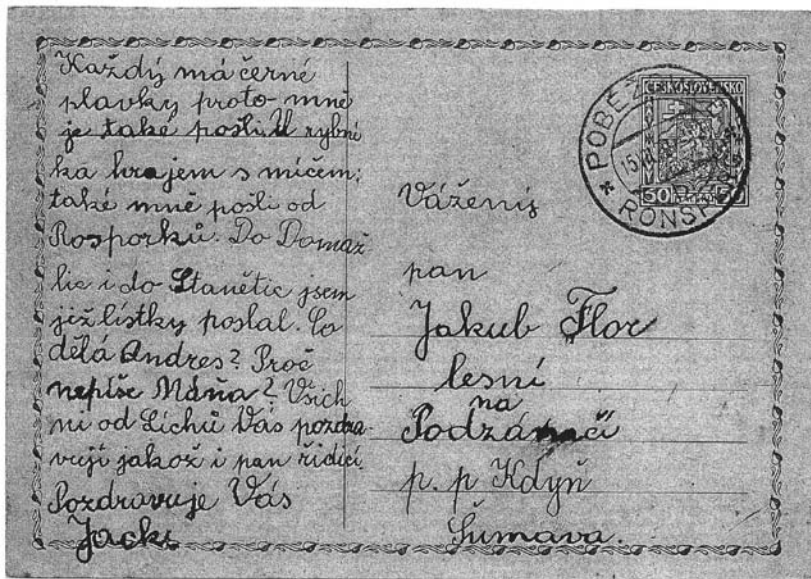 Každý má černé
plavky proto mně
je také pošli. U rybní
ka hrajem s míčem;
také mně pošli od
Rosporků. Do Domaž
lic i do Stanětic jsem
již lístky poslal. Co
dělá Andres? Proč
nepíše Máňa? Všich
ni od Lichů Vás pozdra-
vují jakož i pan řídící.
Pozdravuje Vás
ČESKOSLOVENSKO
50 50
POBĚŽ
15
RONSP
Vážený
pan
Jakub Flor
lesní
na
Podzámčí
p. p Kdyň
Šumava.